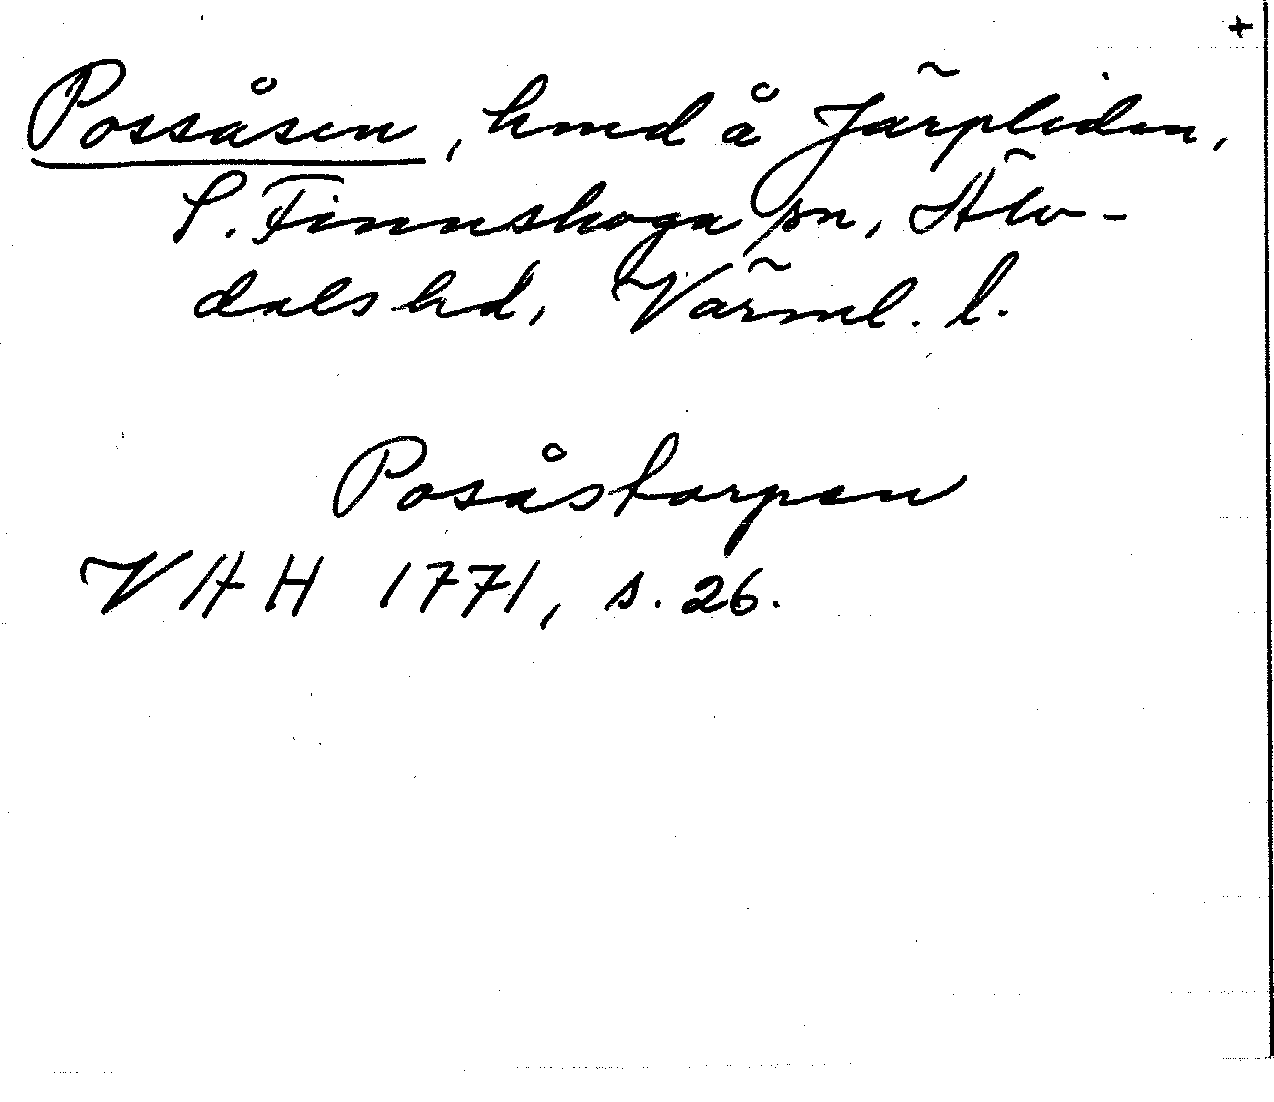 +
Possåsen, hmd å Järpliden,
S. Finnskoga sn, Älv-
dals hd, Värml. l.
Posåstorpen
VAH 1771, s. 26.